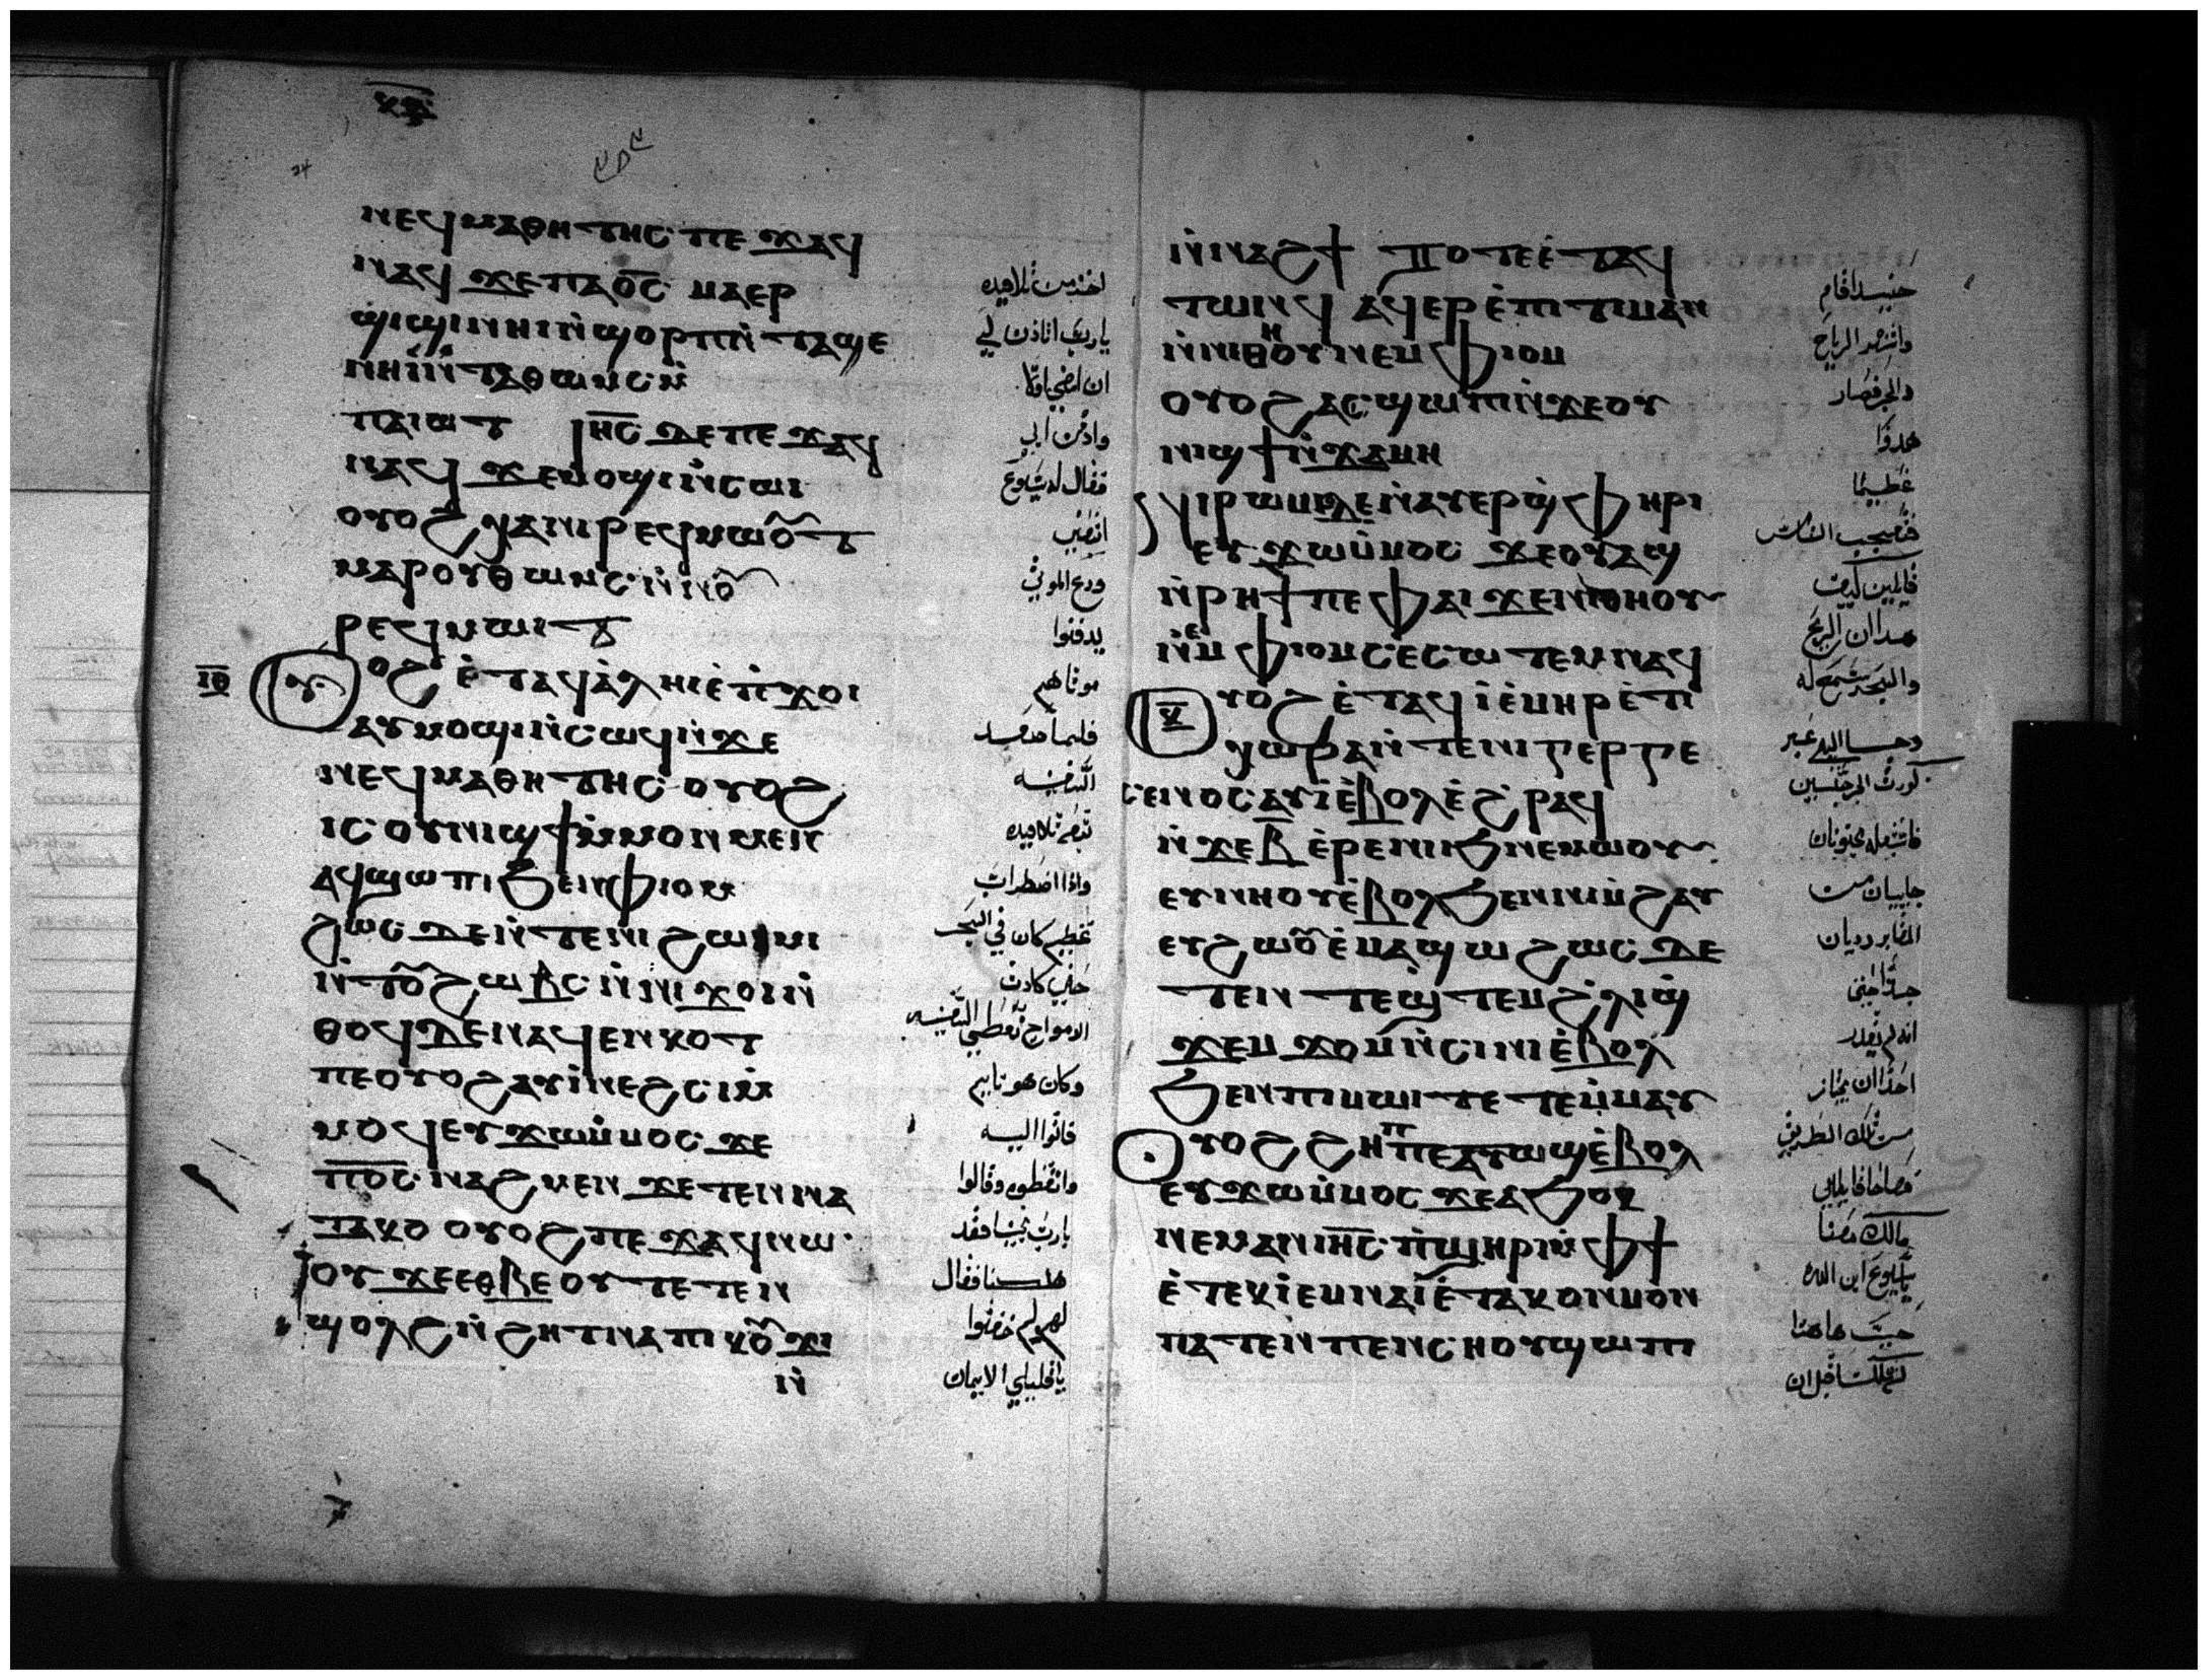 ⲛⲉϥⲙⲁⲑⲏⲧⲏⲥ ⲡⲉϫⲁϥ
ⲛⲁϥ ϫⲉ ⲡⲁⲟ̅ⲥ̅ ⲙⲁⲉⲣ
ϣⲓϣⲓ ⲛⲏⲓ ⲛ̀ϣⲟⲣⲡ ⲛ̀ⲧⲁϣⲉ
ⲛⲏⲓ ⲛ̀ⲧⲁⲑⲱⲙⲥ ⲙ̀
ⲡⲁⲓⲱⲧ ⲓⲏ̅ⲥ̅ ⲇⲉ ⲡⲉϫⲁϥ
ⲛⲁϥ ϫⲉ ⲙⲟϣⲓ ⲛ̀ⲥⲱⲓ
ⲟⲩⲟϩ ⲭⲁ ⲛⲓⲣⲉϥⲙⲱⲟⲩⲧ
ⲙⲁⲣⲟⲩⲑⲱⲙⲥ ⲛ̀ⲛⲟⲩ
ⲣⲉϥⲙⲱⲟⲩⲧ
ⲓ̅ⲑ̅ ⲟⲩⲟϩ ⲉ̀ⲧⲁϥⲁ̀ⲗⲏⲓ ⲉ̀ⲡ̀ϫⲟⲓ
ⲁⲩⲙⲟϣⲓ ⲛ̀ⲥⲱϥ ⲛ̀ϫⲉ
ⲛⲉϥⲙⲁⲑⲏⲧⲏⲥ ⲟⲩⲟϩ
ⲓⲥ ⲟⲩⲛⲓϣϯ ⲙ̀ⲙⲟⲛⲙⲉⲛ
ⲁϥϣⲱⲡⲓ ϧⲉⲛ ⲫⲓⲟⲙ
ϩⲱⲥⲇⲉ ⲛ̀ⲧⲉ ⲛⲓϩⲱⲓⲙⲓ
ⲛ̀ⲧⲟⲩϩⲱⲃⲥ ⲙ̀ⲡⲓϫⲟⲓ ⲛ̀
ⲑⲟϥ ⲇⲉ ⲛⲁϥⲉⲛⲕⲟⲧ
ⲡⲉ ⲟⲩⲟϩ ⲁⲩⲓ̀ ⲛⲉϩⲥⲓ ⲙ̀
ⲙⲟϥ ⲉⲩϫⲱ ⲙ̀ⲙⲟⲥ ϫⲉ
ⲡ̅ⲟ̅ⲥ̅ ⲛⲁϩⲙⲉⲛ ϫⲉ ⲧⲉⲛⲛⲁ
ⲧⲁⲕⲟ ⲟⲩⲟϩ ⲡⲉϫⲁϥ ⲛⲱ
ⲟⲩ ϫⲉ ⲉⲑⲃⲉ ⲟⲩ ⲧⲉⲧⲉⲛ
ϣⲟⲗϩ ⲛ̀ϩⲏⲧ ⲛⲁ ⲡⲓⲕⲟⲩϫⲓ
ⲛ̀
اخذ من تلاميذه
يارب اتاذن لي
ان امضي اولا
وادفن ابي
فقال له يسوع
اتبعني
ودع الموتي
يدفنوا
موتاهم
فلما صعد
السفينه
تبعه تلاميذه
واذا اضطراب
عظيم كان في البحر
حتي كادت
الامواج تغطي السفينه
وكان هو نايم
فاتوا اليه
وايقظوه وقالوا
يارب نجنا فقد
هلكنا فقال
لهم لم خفتوا
ياقليلي الايمان
ⲛ̀ⲛⲁϩϯ ⲧⲟⲧⲉ ⲉ̀ⲧⲁϥ
ⲧⲱⲛϥ ⲁϥⲉⲣⲉ̀ⲡⲓⲧⲓⲙⲁⲛ
ⲛ̀ⲛⲓⲑⲏⲟⲩ ⲛⲉⲙ ⲫⲓⲟⲙ
ⲟⲩⲟϩ ⲁⲥϣⲱⲡⲓ ⲛ̀ϫⲉ ⲟⲩ
ⲛⲓϣϯ ⲛ̀ϫⲁⲙⲏ
ⲛⲓⲣⲱⲙⲓ ⲇⲉ ⲛⲁⲩⲉⲣϣ̀ⲫⲏⲣⲓ
ⲉⲩϫⲱ ⲙ̀ⲙⲟⲥ ϫⲉ ⲟⲩⲁϣ
ⲛ̀ⲣⲏϯ ⲡⲉ ⲫⲁⲓ ϫⲉ ⲛⲓⲑⲏⲟⲩ
ⲛⲉⲙ ⲫⲓⲟⲙ ⲥⲉⲥⲱⲧⲉⲙ ⲛⲁϥ
ⲕ̅ ⲟⲩⲟϩ ⲉ̀ⲧⲁϥⲓ̀ ⲉ̀ⲙⲏⲣ ⲉ̀ϯ
ⲭⲱⲣⲁ ⲛ̀ⲧⲉ ⲛⲓⲅⲉⲣⲅⲉ
ⲥⲉⲛⲟⲥ ⲁⲩⲓ̀ ⲉ̀ⲃⲟⲗ ⲉ̀ϩⲣⲁϥ
ⲛ̀ϫⲉ ⲃ̅ ⲉ̀ⲣⲉ ⲛⲓⲓϧ ⲛⲉⲙⲱⲟⲩ
ⲉⲩⲛⲏⲟⲩ ⲉ̀ⲃⲟⲗ ϧⲉⲛ ⲛⲓⲙ̀ϩⲁⲩ
ⲉⲩϩⲱⲟⲩ ⲉ̀ⲙⲁϣⲱ ϩⲱⲥⲇⲉ
ⲛ̀ⲧⲉϣ̀ⲧⲉⲙ ϩ̀ⲗⲓ ϣ̀
ϫⲉⲙϫⲟⲙ ⲛ̀ⲥⲓⲛⲓ ⲉ̀ⲃⲟⲗ
ϧⲉⲛ ⲡⲓⲙⲱⲓⲧ ⲉⲧⲉⲙ̀ⲙⲁⲩ
ⲟⲩⲟϩ ϩⲏⲡⲡⲉ ⲁⲩⲱϣ ⲉ̀ⲃⲟⲗ
ⲉⲩϫⲱ ⲙ̀ⲙⲟⲥ ϫⲉ ⲁϧⲟⲕ
ⲛⲉⲙⲁⲛ ⲓⲏ̅ⲥ̅ ⲡ̀ϣⲏⲣⲓ ⲙ̀ⲫϯ
ⲉ̀ⲧⲉⲕⲓ̀ ⲉⲙⲛⲁⲓ ⲉ̀ⲧⲁⲕⲟⲛ ⲙ̀ⲙⲟⲛ
ⲡⲁⲧⲉⲛ ⲡⲉⲛⲥⲏⲟⲩ ϣⲱⲡⲓ
حينيذ اقام
وانتهر الرياح
والبحر فصار
هدوا
عظيما
فتعجب الناس
قايلين كيف
هذا ان الريح
والبحر تسمع له
وجا الي عبر
كورت الجرجسيين
فاستقبله مجنونان
جاييان من
المقابر رديان
جدا حتي
انه لم يقدر
احد ان يجتاز
من تلك الطريق
فصاحا قايلين
مالك ومعنا
يايسوع ابن الله
جيت هاهنا
لتهلكنا قبل ان